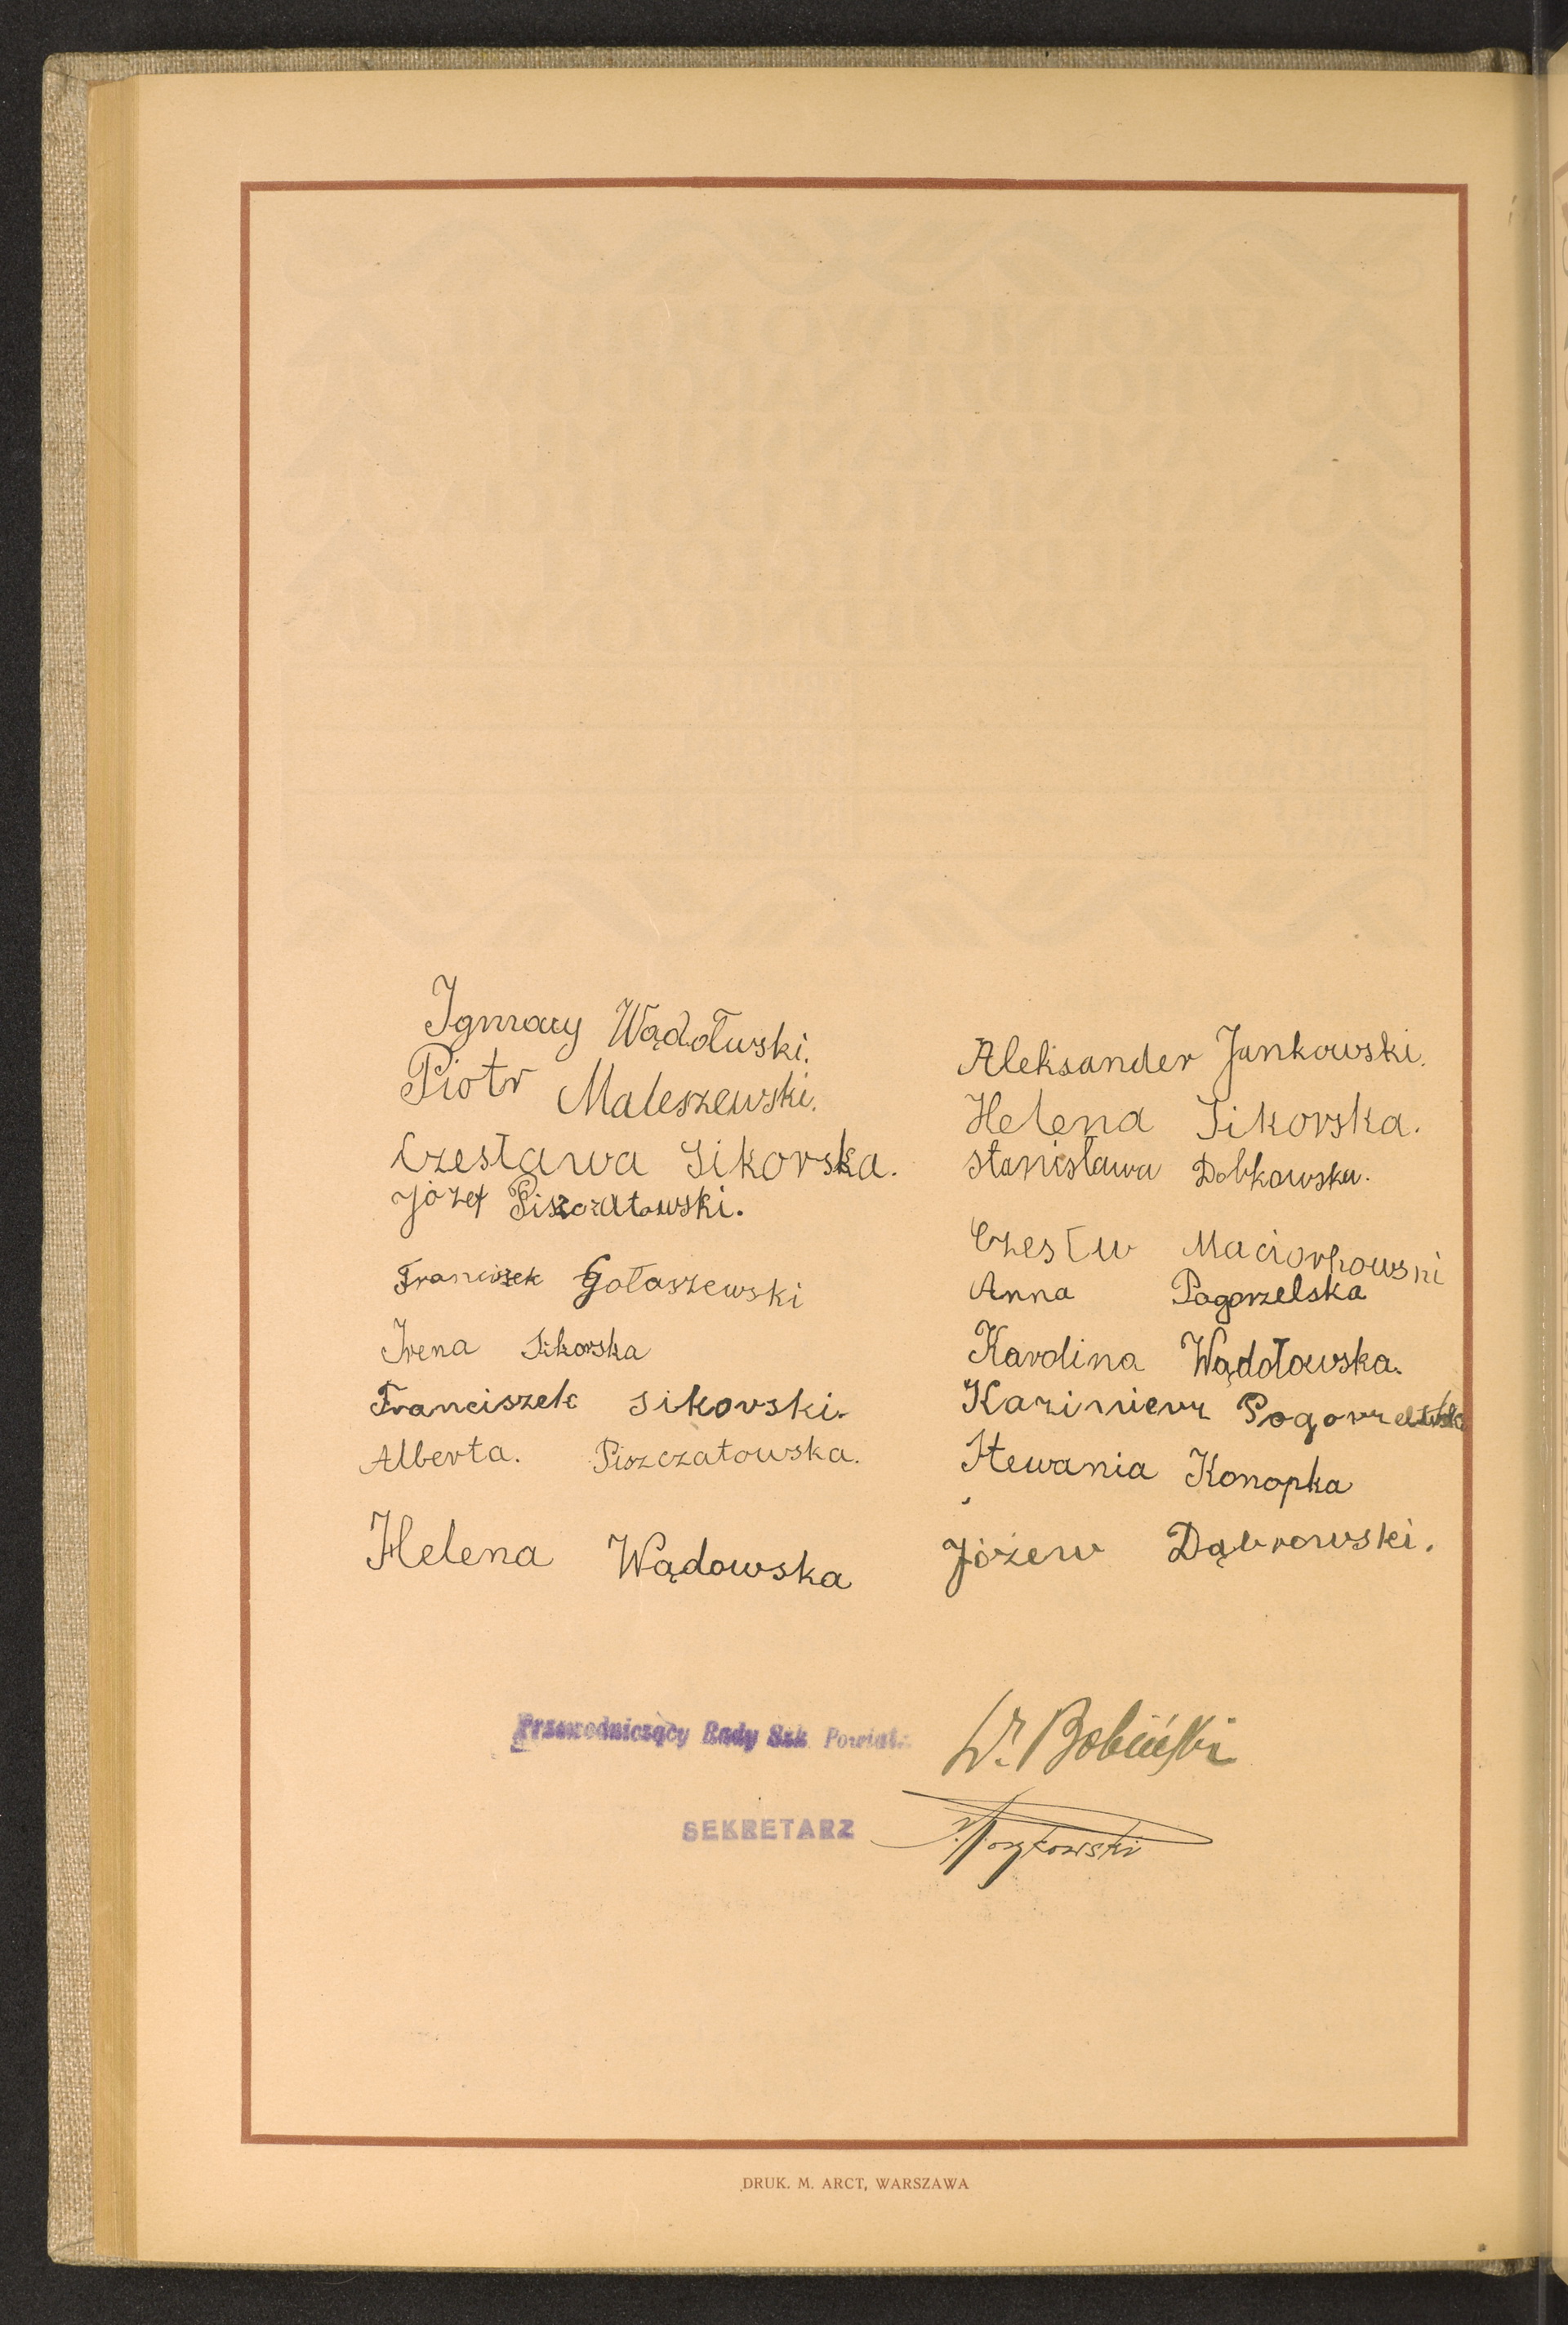 Ignacy Wądołwski.
Piotr Maleszewski.
Czesława Sikorska.
Józef Piszczatowski.
Franciszek Gołaszewski
Irena Sikorska
Franciszek Sikorski.
Alberta. Piszczatowska.
Helena Wądowska
Aleksander Jankowski.
Helena Sikorska.
Stanisława Dobkowska.
Czesłw Maciorkowski
Anna Pogorzelska
Karolina Wądołowska.
Kazimierz
Stewania Konopka
Józew Dąbrowski.
Przewodniczący Rady Szk. Powiat.
Dr. Bobiński
SEKRETARZ
DRUK. M. ARCT, WARSZAWA